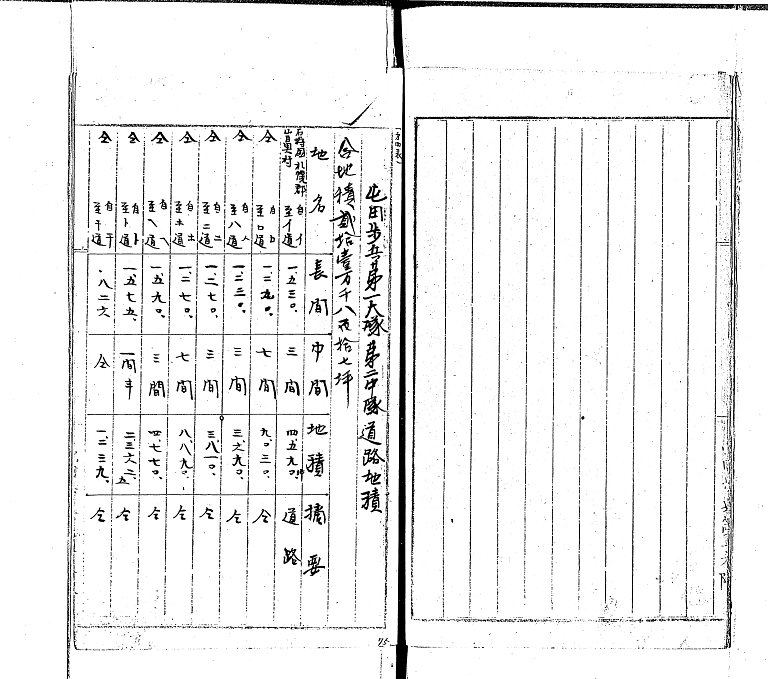 屯田歩兵第一大隊第二中隊道路地積
合地積貳拾壹万千八百拾七坪
地名 長間 巾間 地積 摘要
石狩国札幌郡
山鼻村 自イ至イ道 一、五三〇、 三間 四、五九〇、坪 道路
仝 自ロ至ロ道 一、二九〇、 七間 九、〇三〇、 仝
仝 自ハ至ハ道 一、二三〇、 三間 三、六九〇、 仝
仝 自ニ至ニ道 一、二七〇、 三間 三、八一〇、 仝
仝 自ホ至ホ道 一、二七〇、 七間 八、八九〇、 仝
仝 自ヘ至ヘ道 一、五九〇、 三間 四、七七〇、 仝
仝 自ト至ト道 一、五七五、 一間半 二、三六二、五 仝
仝 自チ至チ道 、八二六 仝 一、二三九、 仝